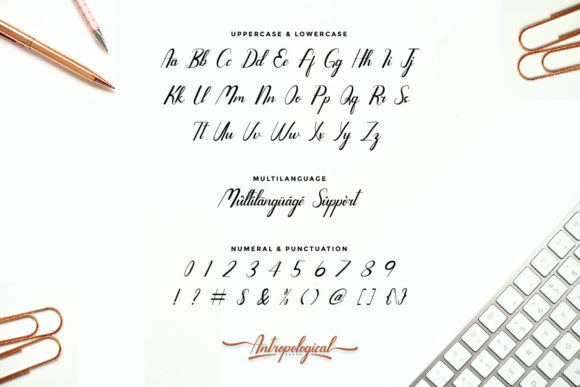 UPPERCASE & LOWERCASE
Aa Bb Cc Dd Ee Ff Gg Hh Ii Jj
Kk Ll Mm Nn Oo Pp Qq Rr Ss
Tt Uu Vv Ww Xx Yy Zz
MULTILANGUAGE
Múltìlangüágé Súppòrt
NUMERAL & PUNCTUATION
0 1 2 3 4 5 6 7 8 9
! ? # $ & % ( ) @ [ ] { }
Antropological